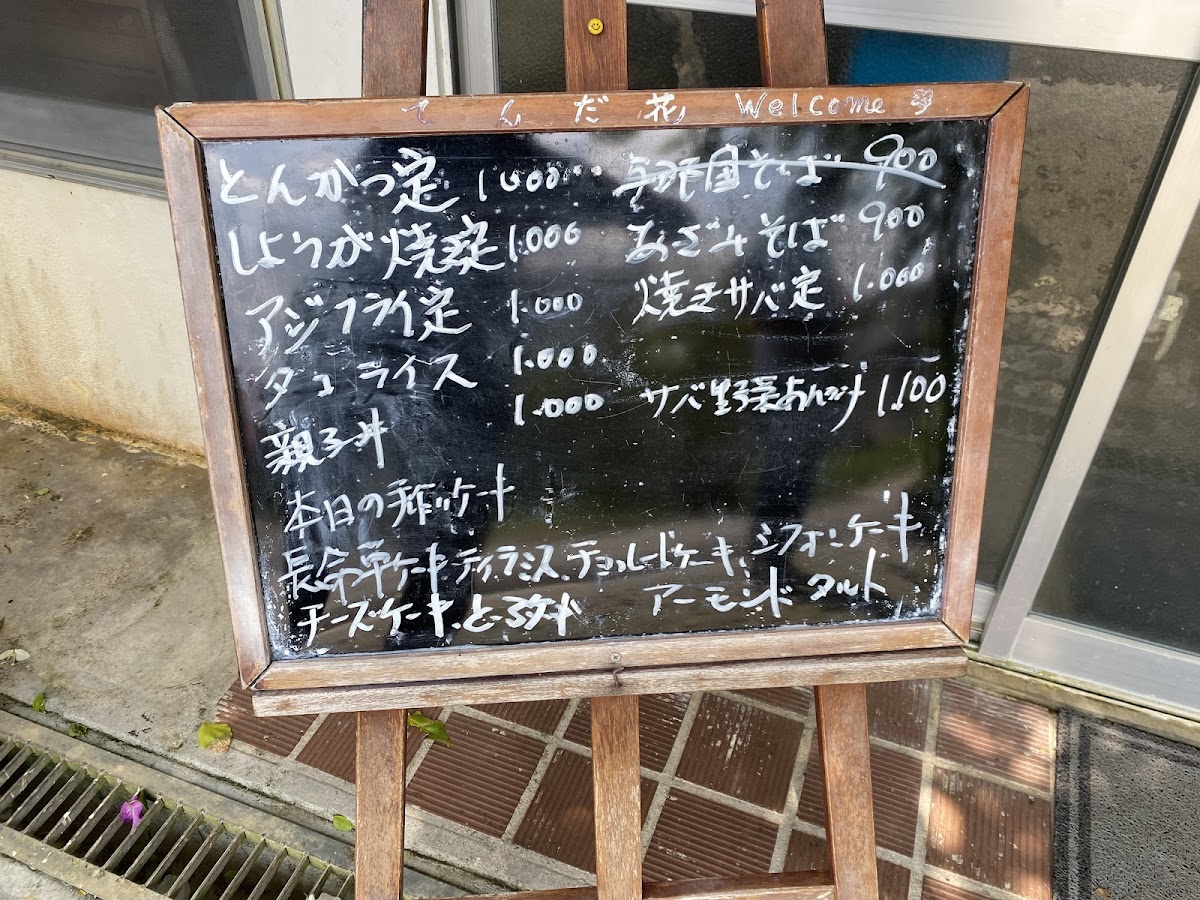 てんだ花 Welcome
とんかつ定 1000
しょうが焼定 1.000
アジフライ定 1.000
タコライス 1.000
親子丼 1.000
与那国そば 900
あざみそば 900
焼きサバ定 1.000
サバ野菜あんかけ 1.100
本日の手作りケーキ
長命草ケーキ.ティラミス.チョコレートケーキ.シフォンケーキ
チーズケーキ. アーモンドタルト